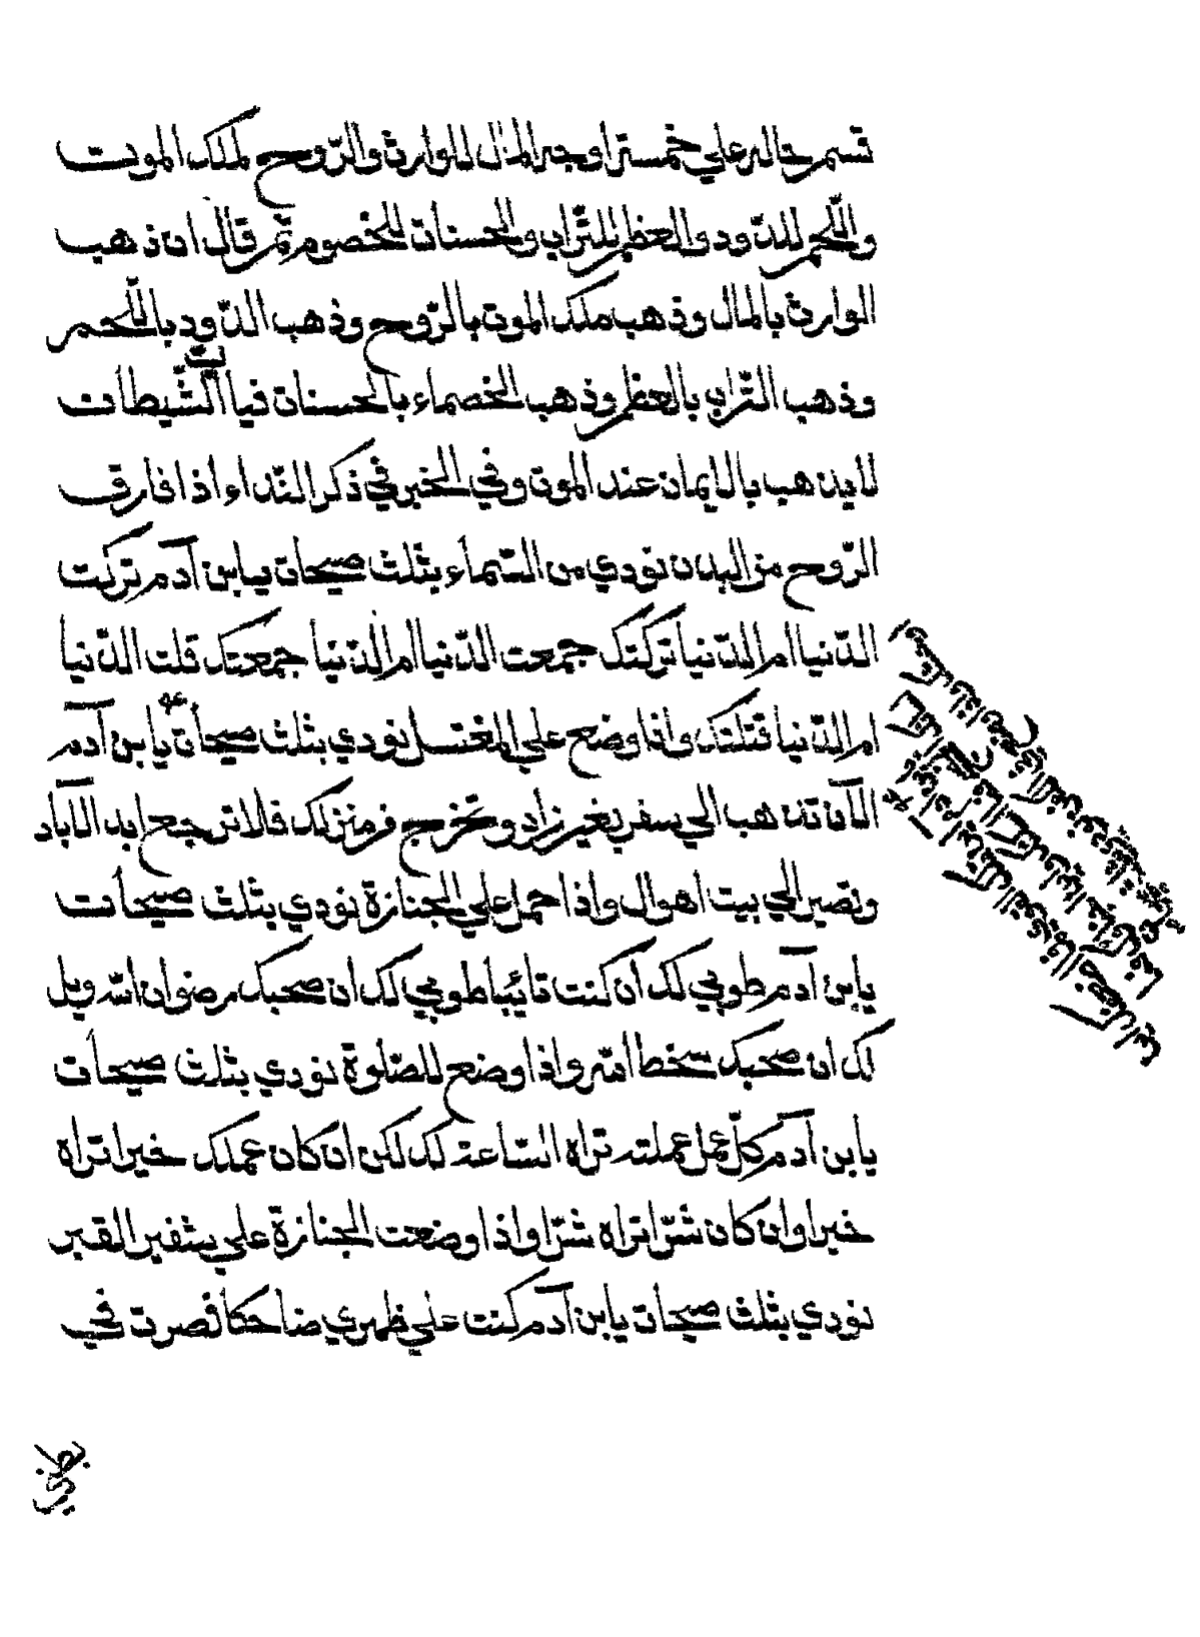 قسم حاله علي خمسة اوجه المال للوارث والرّوح لملك الموت
واللّحم للدّود والعظم للتّراب والحسنات للخصوم ثم قال ان ذهب
الوارث بالمال وذهب ملك الموت بالرّوح وذهب الدّود باللّحم
وذهب التّراب بالعظم وذهب الخصماء بالحسنات فيا ليت الشّيطان
لا يذهب بالايمان عند الموت وفي الخبر في ذكر النّداء اذا فارق
الرّوح من البدن نودي من السّماء بثلث صيحات يابن آدم تركت
الدّنيا ام الدّنيا تركتك جمعت الدّنيا ام الدّنيا جمعتك قلت الدّنيا
ام الدّنيا قتلتك واذا وضع علي المغتسل نودي بثلث صيحات يابن آدم
الآن تذهب الي سفر بغير زاد وتخرج فرمنزلك فلا ترجع ابد الاباد
وتصير الي بيت اهوال واذا حمل علي الجنازة نودي بثلث صيحات
يابن آدم طوبي لك ان كنت تائبا طوبي لك ان صحبك مرضوان اللّه ويل
لك ان صحبك سخط اللّه واذا وضع للصّلوة نودي بثلث صيحات
يابن آدم كلّ عمل عملته تراه السّاعة لك لكن ان كان عملك خيرا تراه
خيرا وان كان شرّا تراه شرّا واذا وضعت الجنازة علي شفير القبر
نودي بثلث صيحات يابن آدم كنت علي ظهري ضاحكا فصرت في
بطني